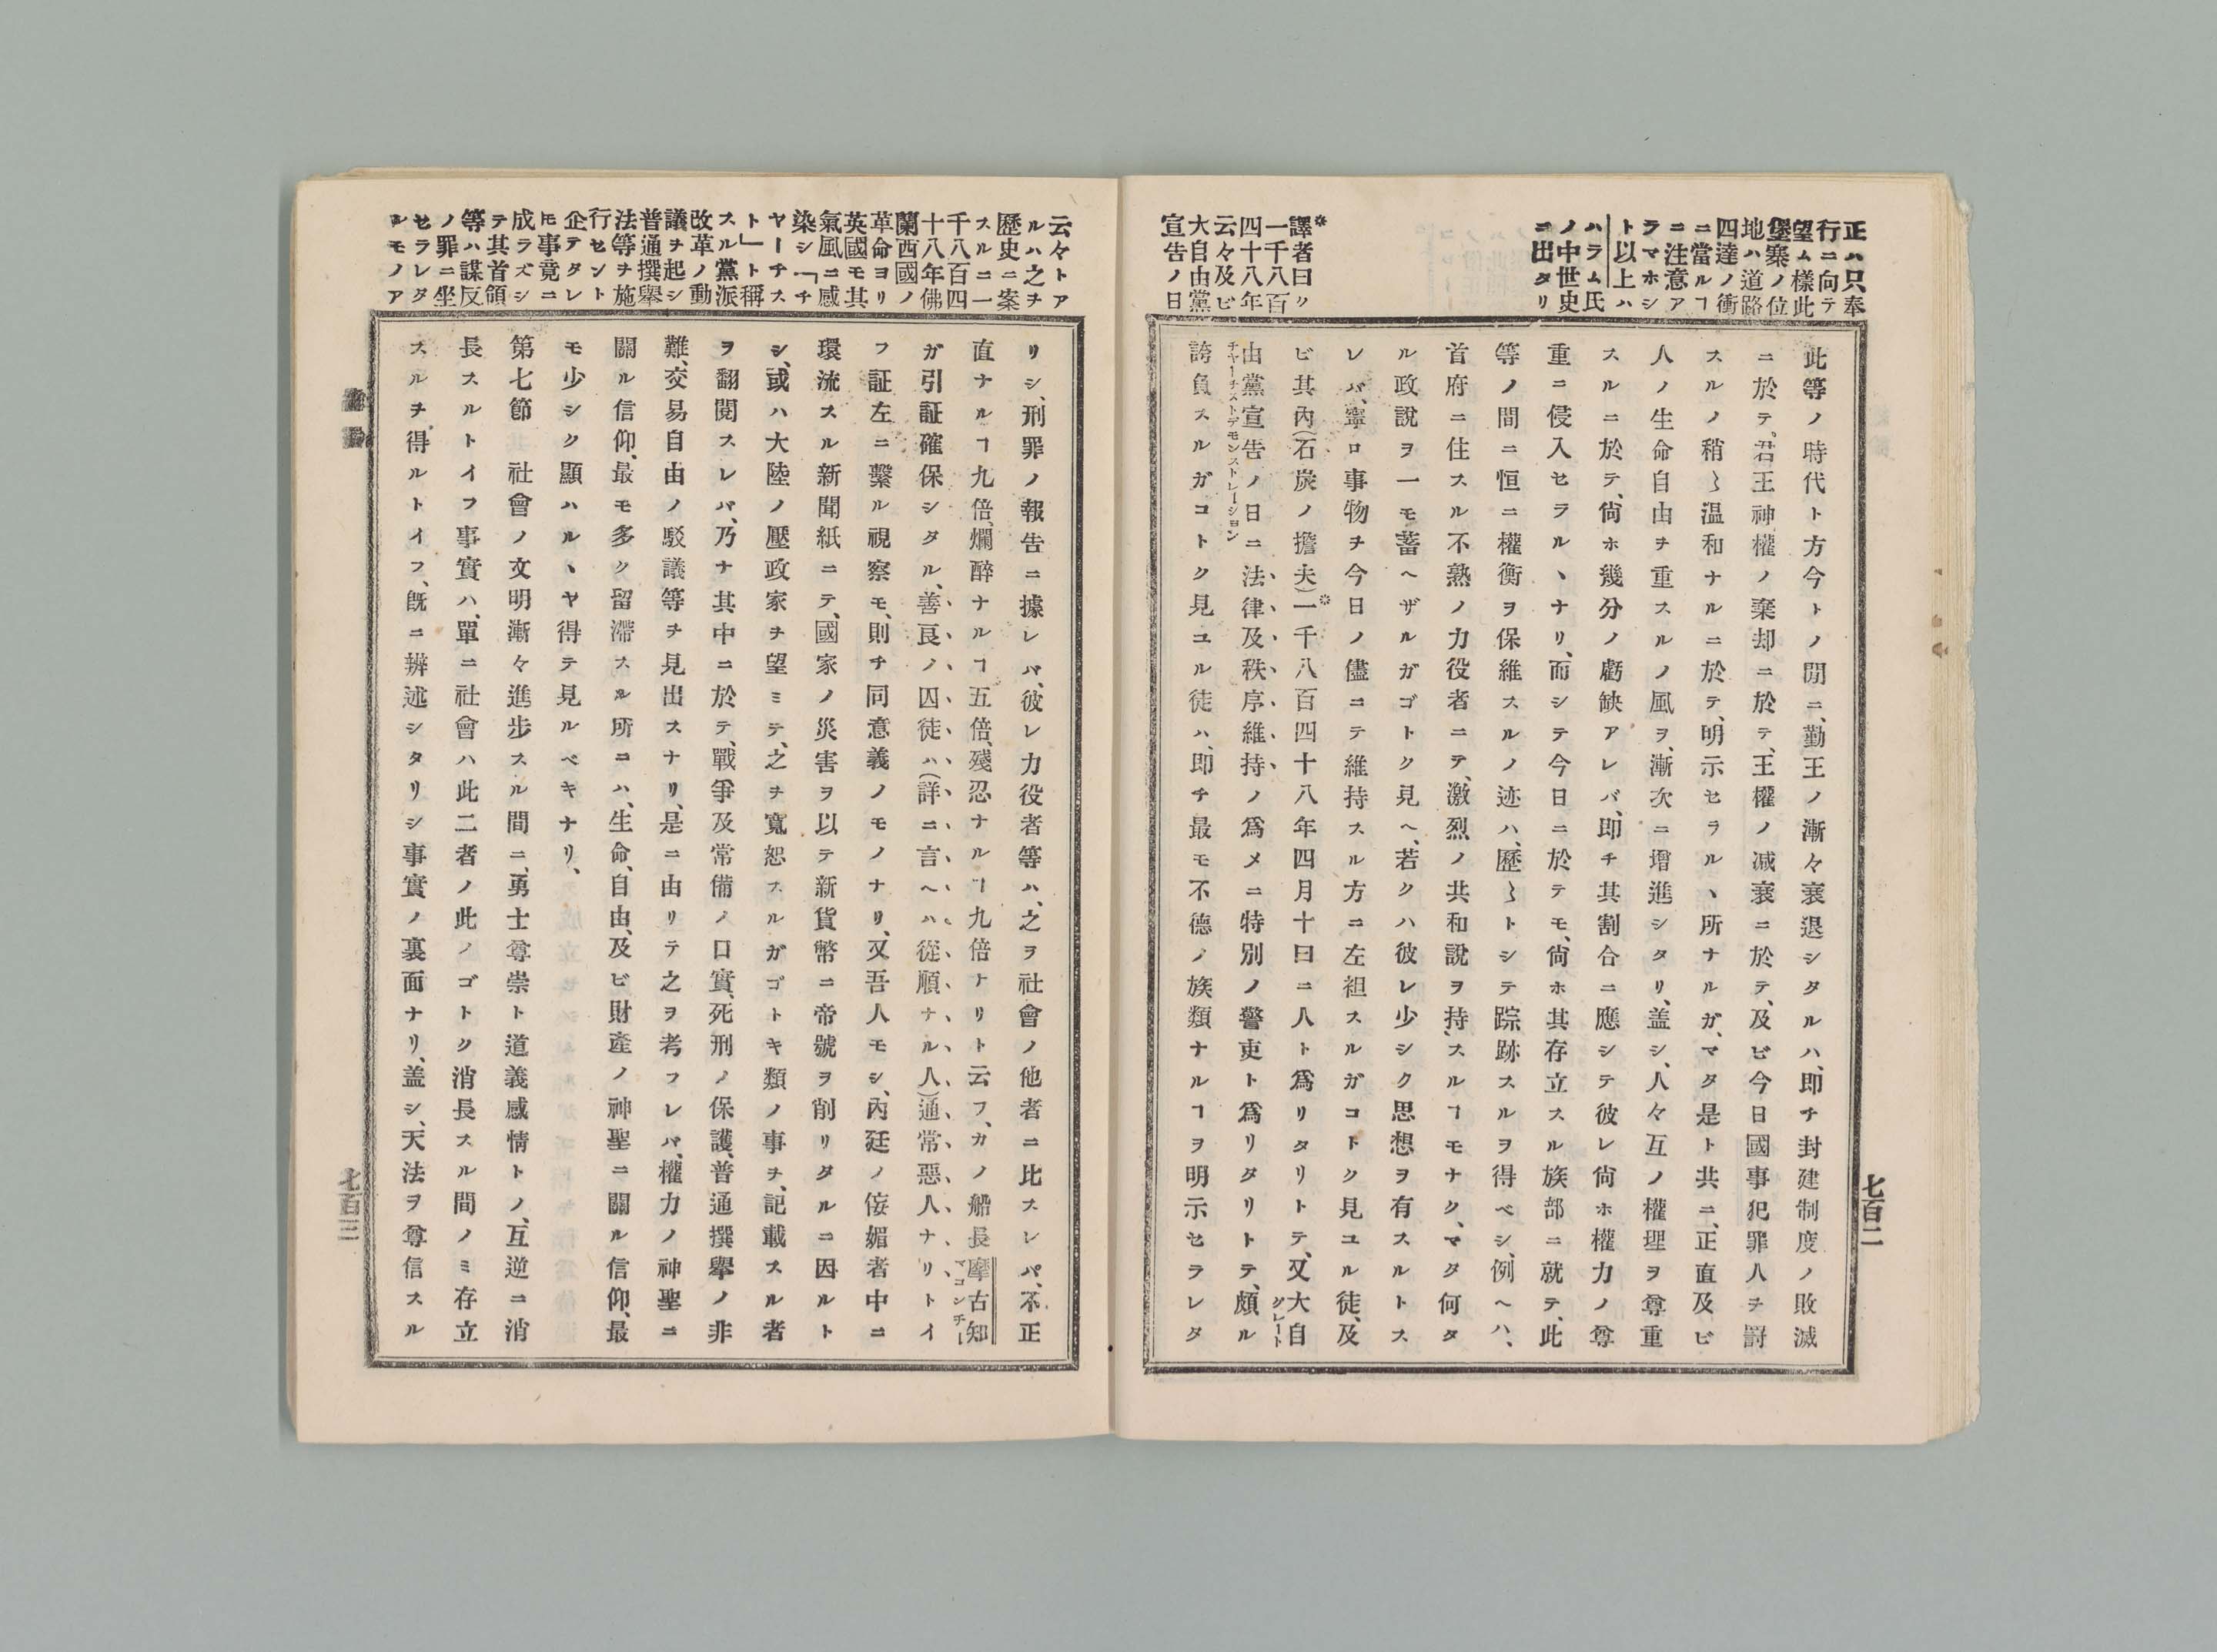 正ハ只、奉
行ニ向テ
望ム樣此
堡寨ノ位
地ハ道路
四達ノ衝
ニ當ルヿ
ニ注意ア
ラマホシ
ト以上ハ
ハラム氏
ノ中世史
ニ出タリ
※譯者曰ク
一千八百
四十八年
云々及ビ
大自由黨
宣告ノ日
此等ノ時代ト方今トノ間ニ、勤王ノ漸々衰退シタルハ、即チ封建制度ノ敗滅
ニ於テ、君王神權ノ棄却ニ於テ、王權ノ减衰ニ於テ、及ビ今日國事犯罪人ヲ罸
スルノ稍〻温和ナルニ於テ、明示セラルヽ所ナルガ、マタ是ト共ニ、正直及ビ
人ノ生命自由ヲ重スルノ風ヲ、漸次ニ增進シタリ、盖シ、人々互ノ權理ヲ尊重
スルニ於テ、尙ホ幾分ノ虧缺アレバ、即チ其割合ニ應シテ彼レ尙ホ權力ノ尊
重ニ侵入セラルヽナリ、而シテ今日ニ於テモ、尙ホ其存立スル族部ニ就テ、此
等ノ間ニ恒ニ權衡ヲ保維スルノ迹ハ、歷〻トシテ踪跡スルヲ得ベシ、例ヘハ、
首府ニ住スル不熟ノ力役者ニテ、激烈ノ共和說ヲ持スルヿモナク、マタ何タ
ル政說ヲ一モ蓄ヘザルガゴトク見ヘ、若クハ彼レ少シク思想ヲ有スルトス
レバ、寧ロ事物ヲ今日ノ儘ニテ維持スル方ニ左袒スルガコトク見ユル徒、及
ビ其內(石炭ノ擔夫)※一千八百四十八年四月十日ニ人ト爲リタリトテ、又大自
グレート
由黨宣告ノ日ニ法律及秩序維持ノ爲メニ特別ノ警吏ト爲リタリトテ、頗ル
チヤーチストデモンストレーシヨン
誇負スルガコトク見ユル徒ハ、即チ最モ不德ノ族類ナルヿヲ明示セラレタ
七百二
云々トア
ルハ之ヲ
歷史ニ案
スルニ一
千八百四
十八年佛
蘭西國ノ
革命ヨリ
英國モ其
氣風ニ感
染シ「チ
ヤーチス
ト」ト稱
スル黨派
改革ノ動
議ヲ起シ
普通撰舉
法等ヲ施
行セント
企テタレ
モ事竟ニ
成ラズシ
テ其首領
等ハ謀反
ノ罪ニ坐
セラレタ
ルモノア
リシ、刑罪ノ報告ニ據レバ、彼レ力役者等ハ、之ヲ社會ノ他者ニ比スレバ、不正
直ナルヿ九倍、爛醉ナルヿ五倍、殘忍ナルヿ九倍ナリト云フ、カノ船長摩古知
マコンチー
ガ引証確保シタル、善良ノ囚徒ハ(詳ニ言ヘハ從順ナル人)通常惡人ナリトイ
フ証左ニ繫ル視察モ、則チ同意義ノモノナリ、又吾人モシ、內廷ノ侫媚者中ニ
環流スル新聞紙ニテ、國家ノ災害ヲ以テ新貨幣ニ帝號ヲ削リタルニ因ルト
シ、或ハ大陸ノ壓政家ヲ望ミテ、之ヲ寬恕スルガゴトキ類ノ事ヲ、記載スル者
ヲ翻閱スレバ、乃ナ其中ニ於テ、戰爭及常備ノ口實、死刑ノ保護、普通撰舉ノ非
難、交易自由ノ駁議等ヲ見出スナリ、是ニ由リテ之ヲ考フレバ、權力ノ神聖ニ
關ル信仰、最モ多ク留滯スル所ニハ、生命、自由、及ビ財產ノ神聖ニ關ル信仰、最
モ少シク顯ハルヽヤ得テ見ルベキナリ、
第七節　社會ノ文明漸々進步スル間ニ、勇士尊崇ト道義感情トノ、互逆ニ消
長スルトイフ事實ハ、單ニ社會ハ此二者ノ此ノゴトク消長スル間ノミ存立
スルヲ得ルトイフ、旣ニ辨述シタリシ事實ノ裏面ナリ、盖シ、天法ヲ尊信スル
七百三